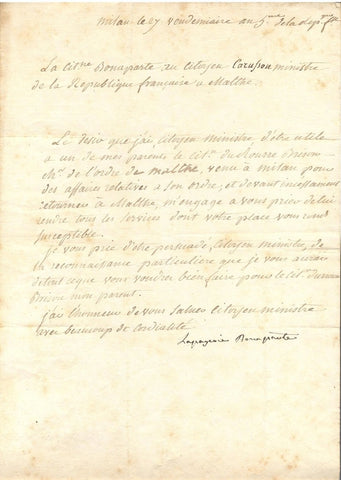 milan le 27 vendemiaire an 6me de la Rep. fse
La citne Bonaparte au citoyen Caruson ministre
de la République française a Malthe.
Le desir que j'ais Citoyen ministre d'être utile
a un de mes parents le cit.
Mr. de l'ordre de malthe, venu a milan pour
des affaires relatives a son ordre, et devant incessament
retourner a Malthe, m'engage a vous prier de lui
rendre tous les services dont votre place vous rend
susceptible.
je vous prie d'être persuadé, Citoyen ministre, de
la reconnaissance particuliere que je vous aurais
de tout ceque vous voudrer bien faire pour le cit.
mon parent.
j'ais l'honneur de vous saluer Citoyen ministre
avec beaucoups de cordialité
Lapagerie Bonaparte